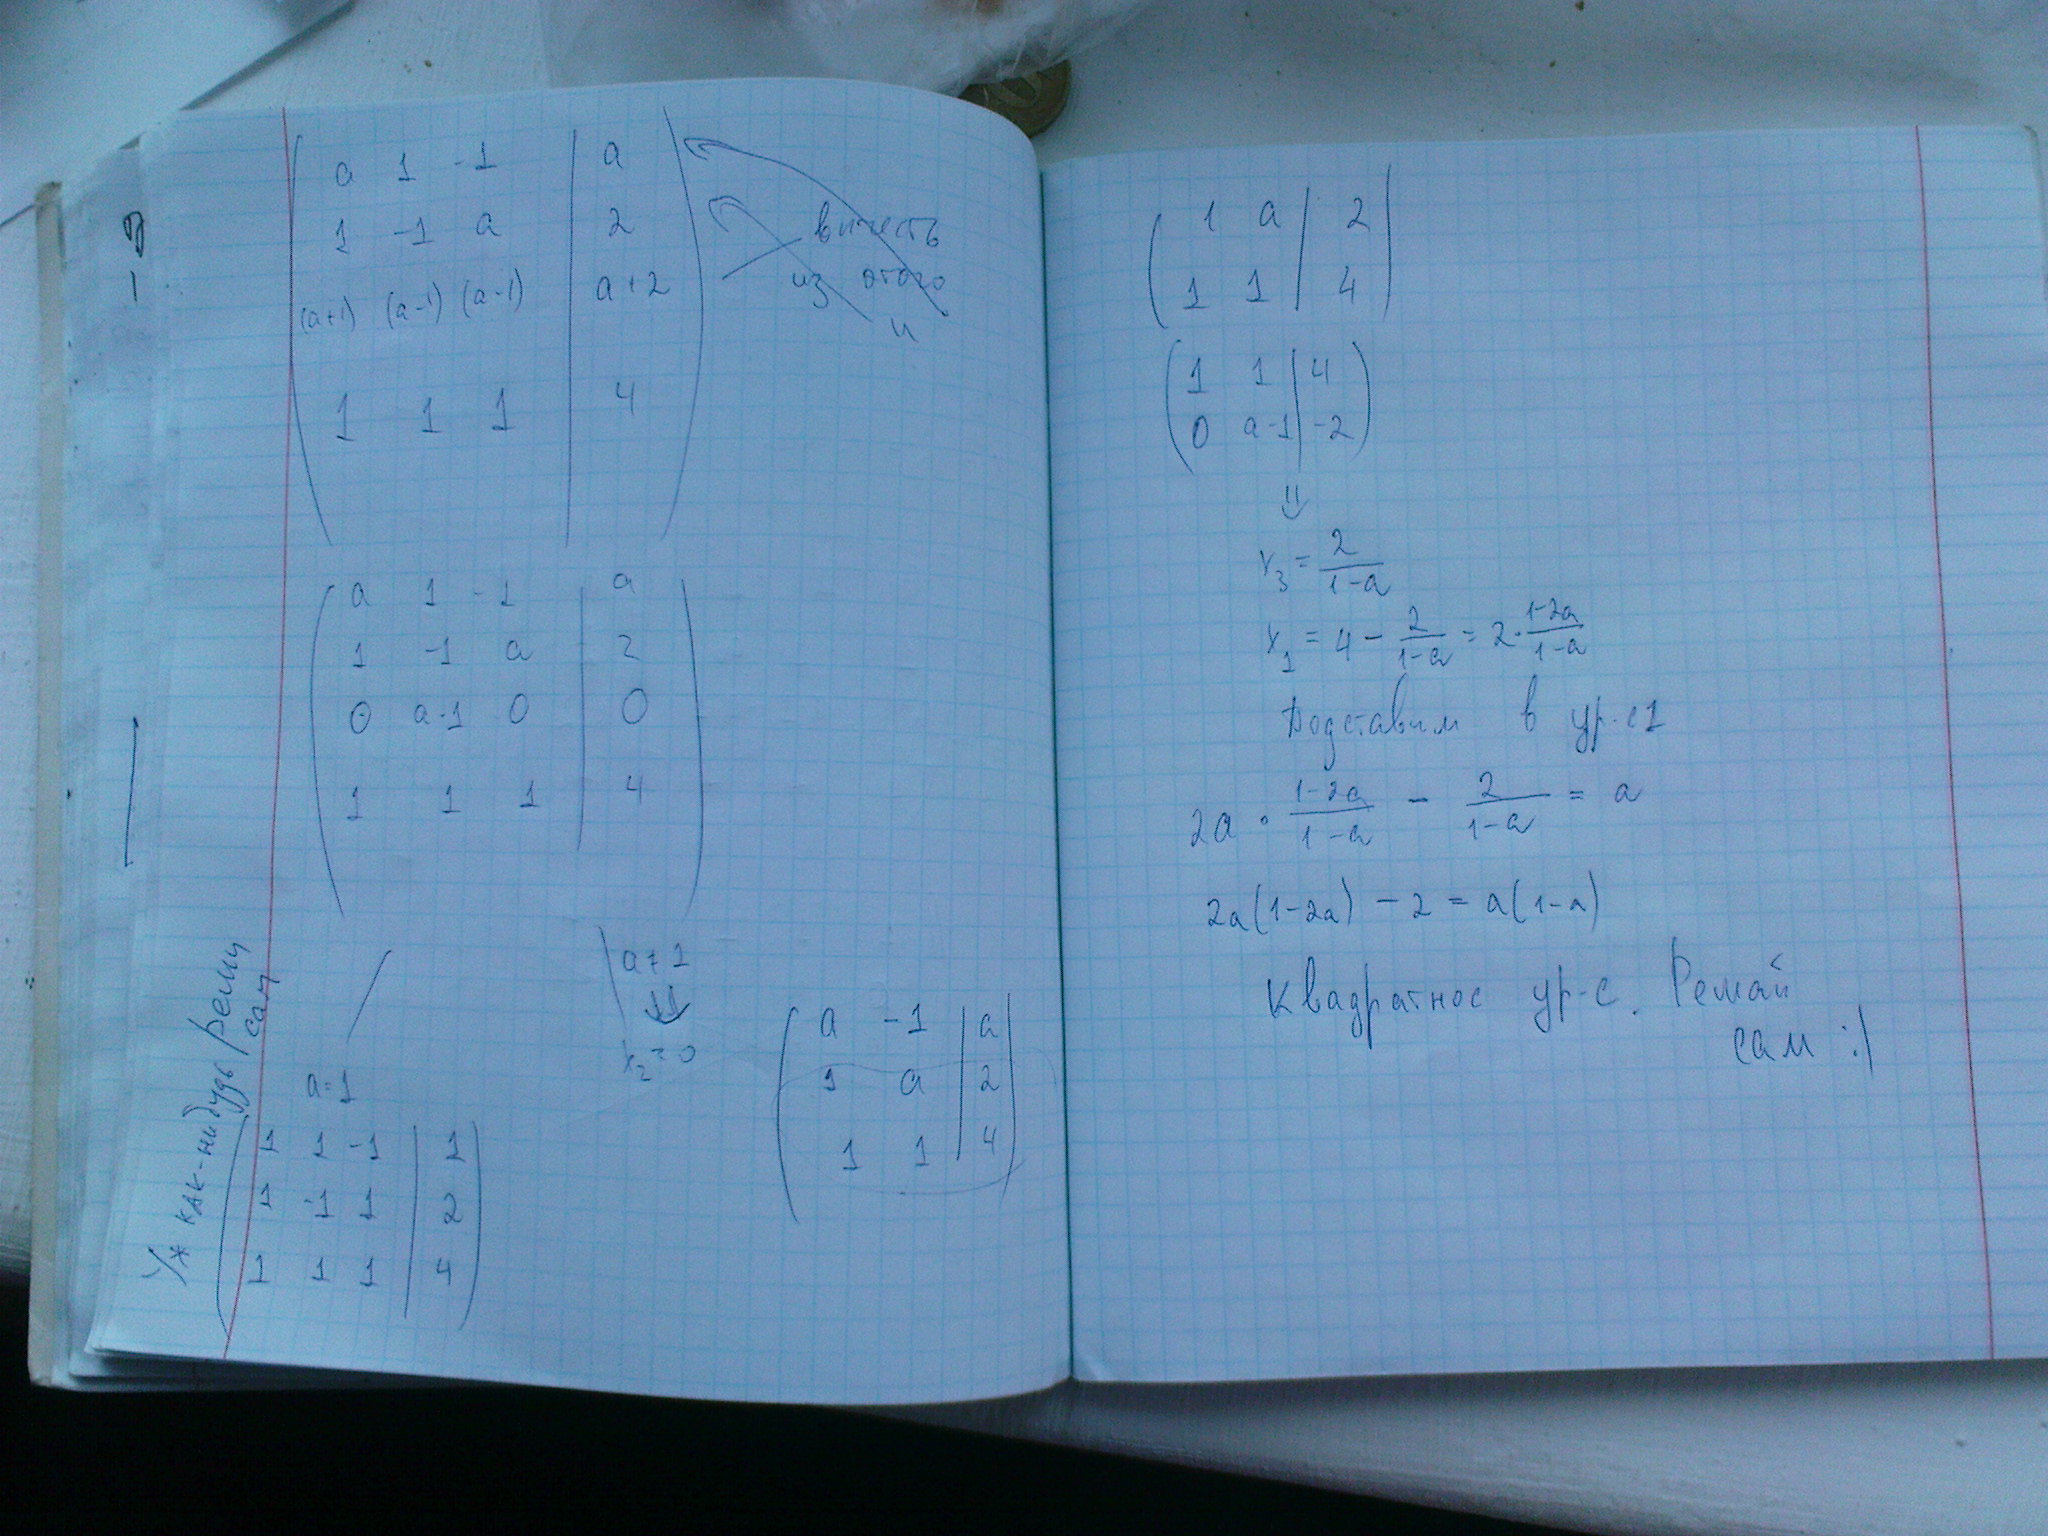 a 1 -1 | a
1 -1 a | 2
(a+1) (a-1) (a-1) | a+2
1 1 1 | 4
вычесть
из этого
и
a 1 -1 | a
1 -1 a | 2
0 a-1 0 | 0
1 1 1 | 4
a≠1
⇓
x₂=0
a=1
1 1 -1 | 1
1 -1 1 | 2
1 1 1 | 4
Уж как-нибудь реши
сам
a -1 | a
1 a | 2
1 1 | 4
1 a | 2
1 1 | 4
1 1 | 4
0 a-1 | -2
⇓
x₃ = 2/(1-a)
x₁ = 4 - 2/(1-a) = 2·(1-2a)/(1-a)
Подставим в ур-е 1
2a · (1-2a)/(1-a) - 2/(1-a) = a
2a(1-2a) - 2 = a(1-a)
Квадратное ур-е. Решай
сам :)